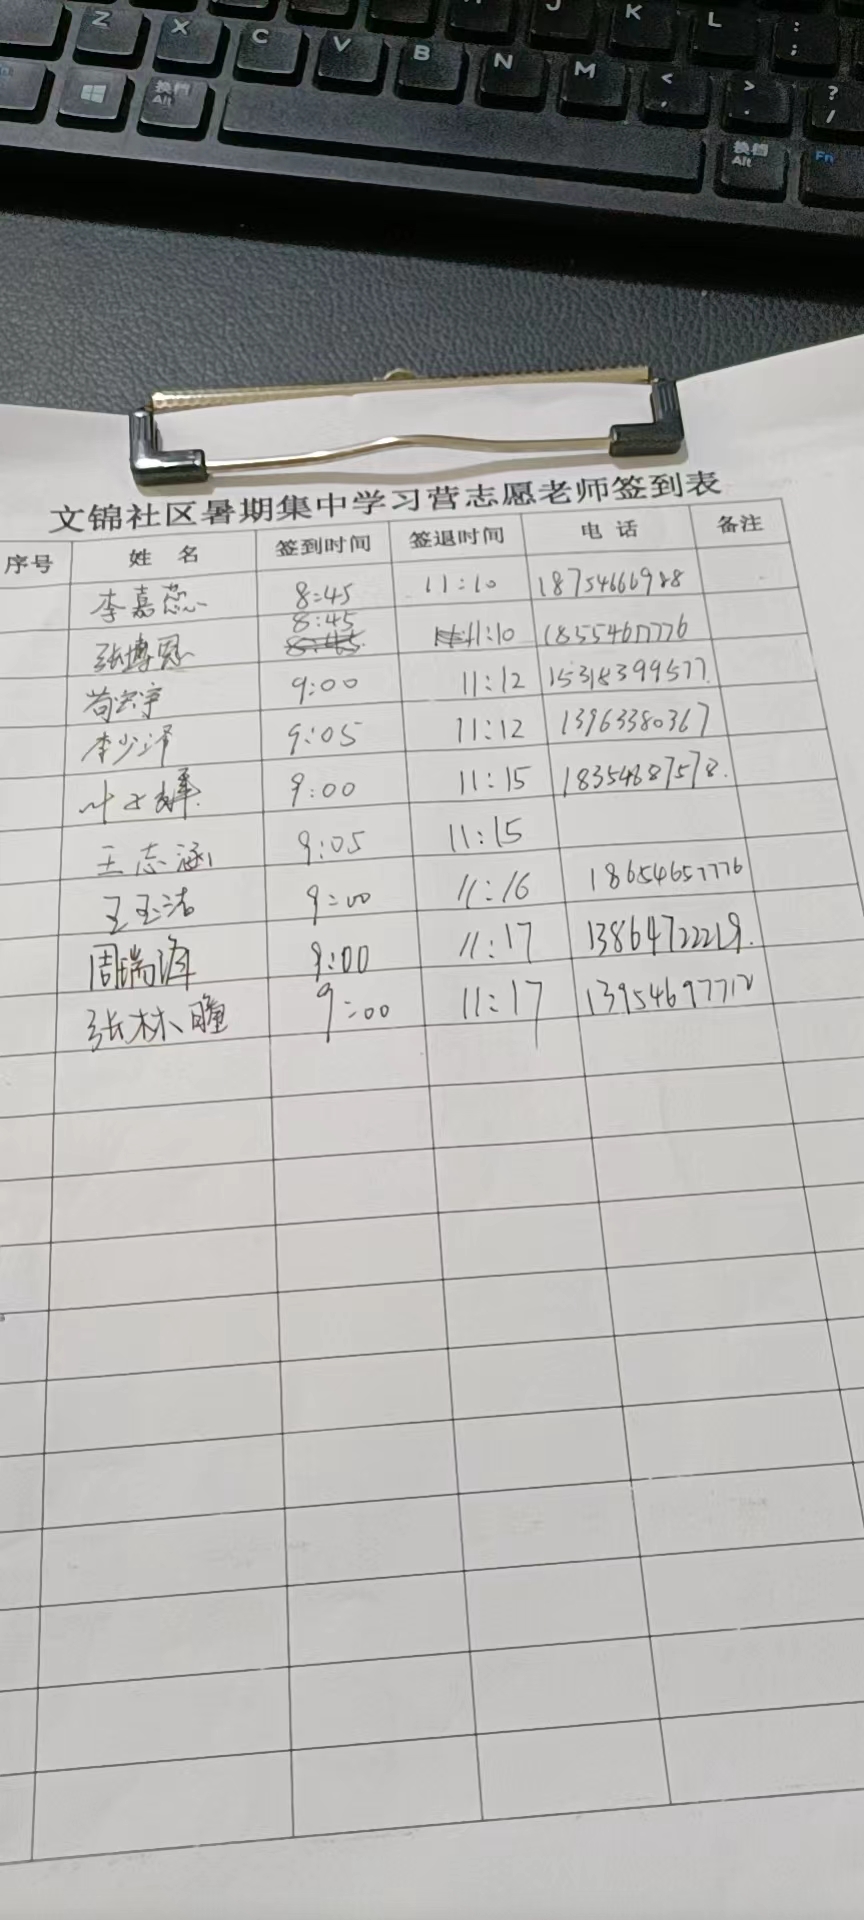 Z X C V B N M J K L : ; < , > . ? /
Fn 换档 Alt 换档 Alt Fn
文锦社区暑期集中学习营志愿老师签到表
序号 姓 名 签到时间 签退时间 电 话 备注
李嘉蕊 8:45 11:10 18754666988
张博恩 8:45 11:10
9:00 11:12 15318399577
李少泽 9:05 11:12 13963380367
叶 9:00 11:15 18354687578.
王志涵 9:05 11:15
王玉洁 9:00 11:16 18654657776
周瑞泽 9:00 11:17 13864722219.
张林瞳 9:00 11:17 13954697712